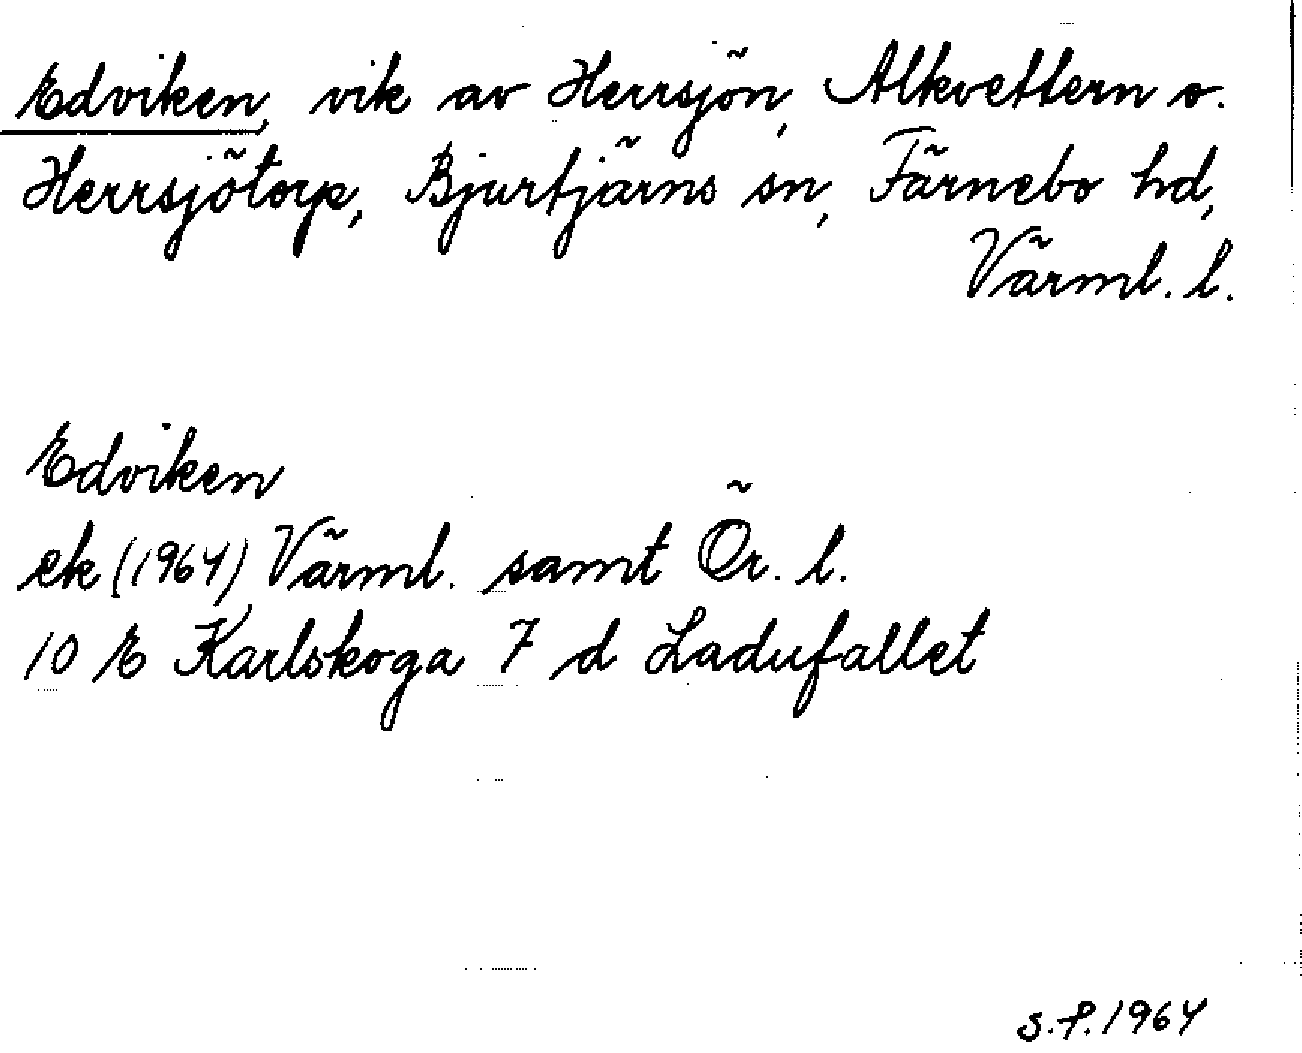 Edviken, vik av Herrsjön, Alkvettern o.
Herrsjötorp, Bjurtjärns sn, Färnebo hd,
Värml. l.
Edviken
ek (1964) Värml. samt Ör. l.
10 E Karlskoga 7 d Ladufallet
S.F. 1964